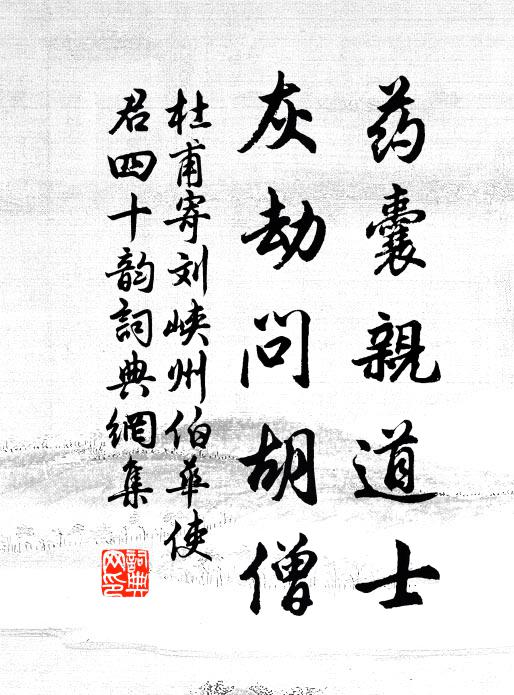 药囊親道士
灰劫问胡僧
杜甫寄刘峡州伯華使
君四十韵詞典網集